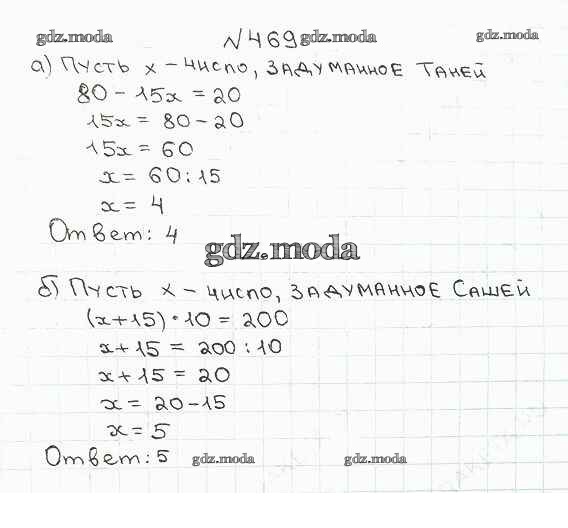 gdz.moda №469 gdz.moda gdz.moda
а) Пусть x – число, задуманное Таней
80 - 15x = 20
15x = 80 - 20
15x = 60
x = 60 : 15
x = 4
Ответ: 4
gdz.moda
б) Пусть x – число, задуманное Сашей
(x+15) · 10 = 200
x+15 = 200 : 10
x+15 = 20
x = 20-15
x = 5
Ответ: 5 gdz.moda gdz.moda